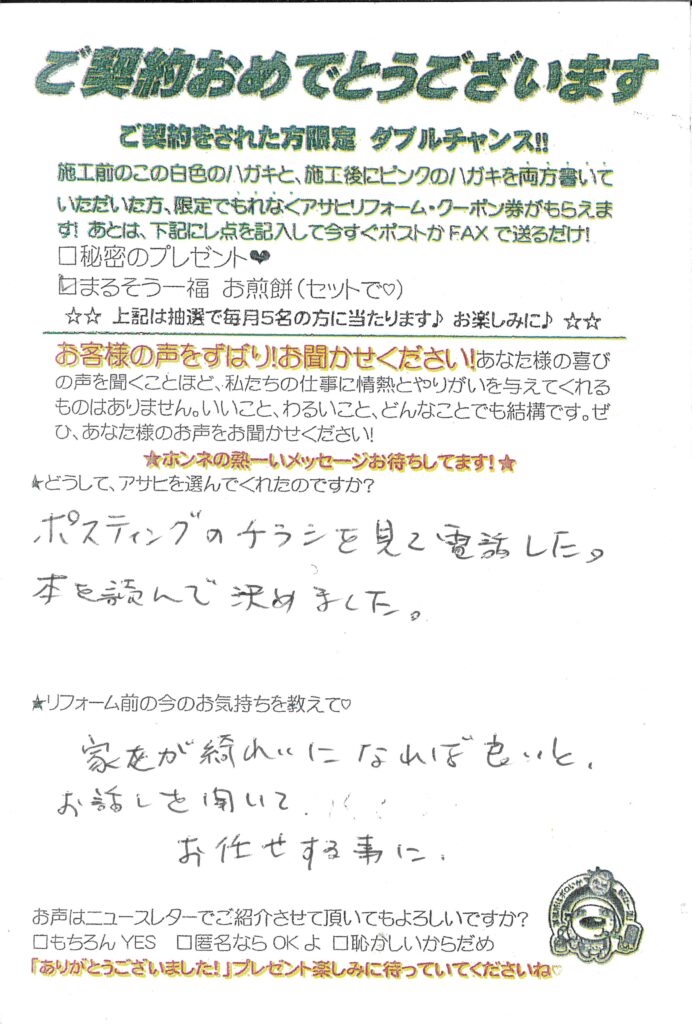 ご契約おめでとうございます
ご契約をされた方限定 ダブルチャンス!!
施工前のこの白色のハガキと、施工後にピンクのハガキを両方書いて
いただいた方、限定でもれなくアサヒリフォーム・クーポン券がもらえま
す! あとは、下記にレ点を記入して今すぐポストか FAX で送るだけ!
□秘密のプレゼント♥
☑まるそう一福 お煎餅(セットで♡)
☆☆ 上記は抽選で毎月5名の方に当たります♪ お楽しみに♪ ☆☆
お客様の声をずばり!お聞かせください!あなた様の喜び
の声を聞くことほど、私たちの仕事に情熱とやりがいを与えてくれる
ものはありません。いいこと、わるいこと、どんなことでも結構です。ぜ
ひ、あなた様のお声をお聞かせください!
★ホンネの熱ーいメッセージお待ちしてます!★
★どうして、アサヒを選んでくれたのですか?
ポスティングのチラシを見て電話した。
本を読んで決めました。
★リフォーム前の今のお気持ちを教えて♡
家が綺れいになれば良いと、
お話しを聞いて
お任せする事に、
お声はニュースレターでご紹介させて頂いてもよろしいですか?
□もちろん YES □匿名なら OK よ □恥かしいからだめ
「ありがとうございました!」プレゼント楽しみに待っていてくださいね♡